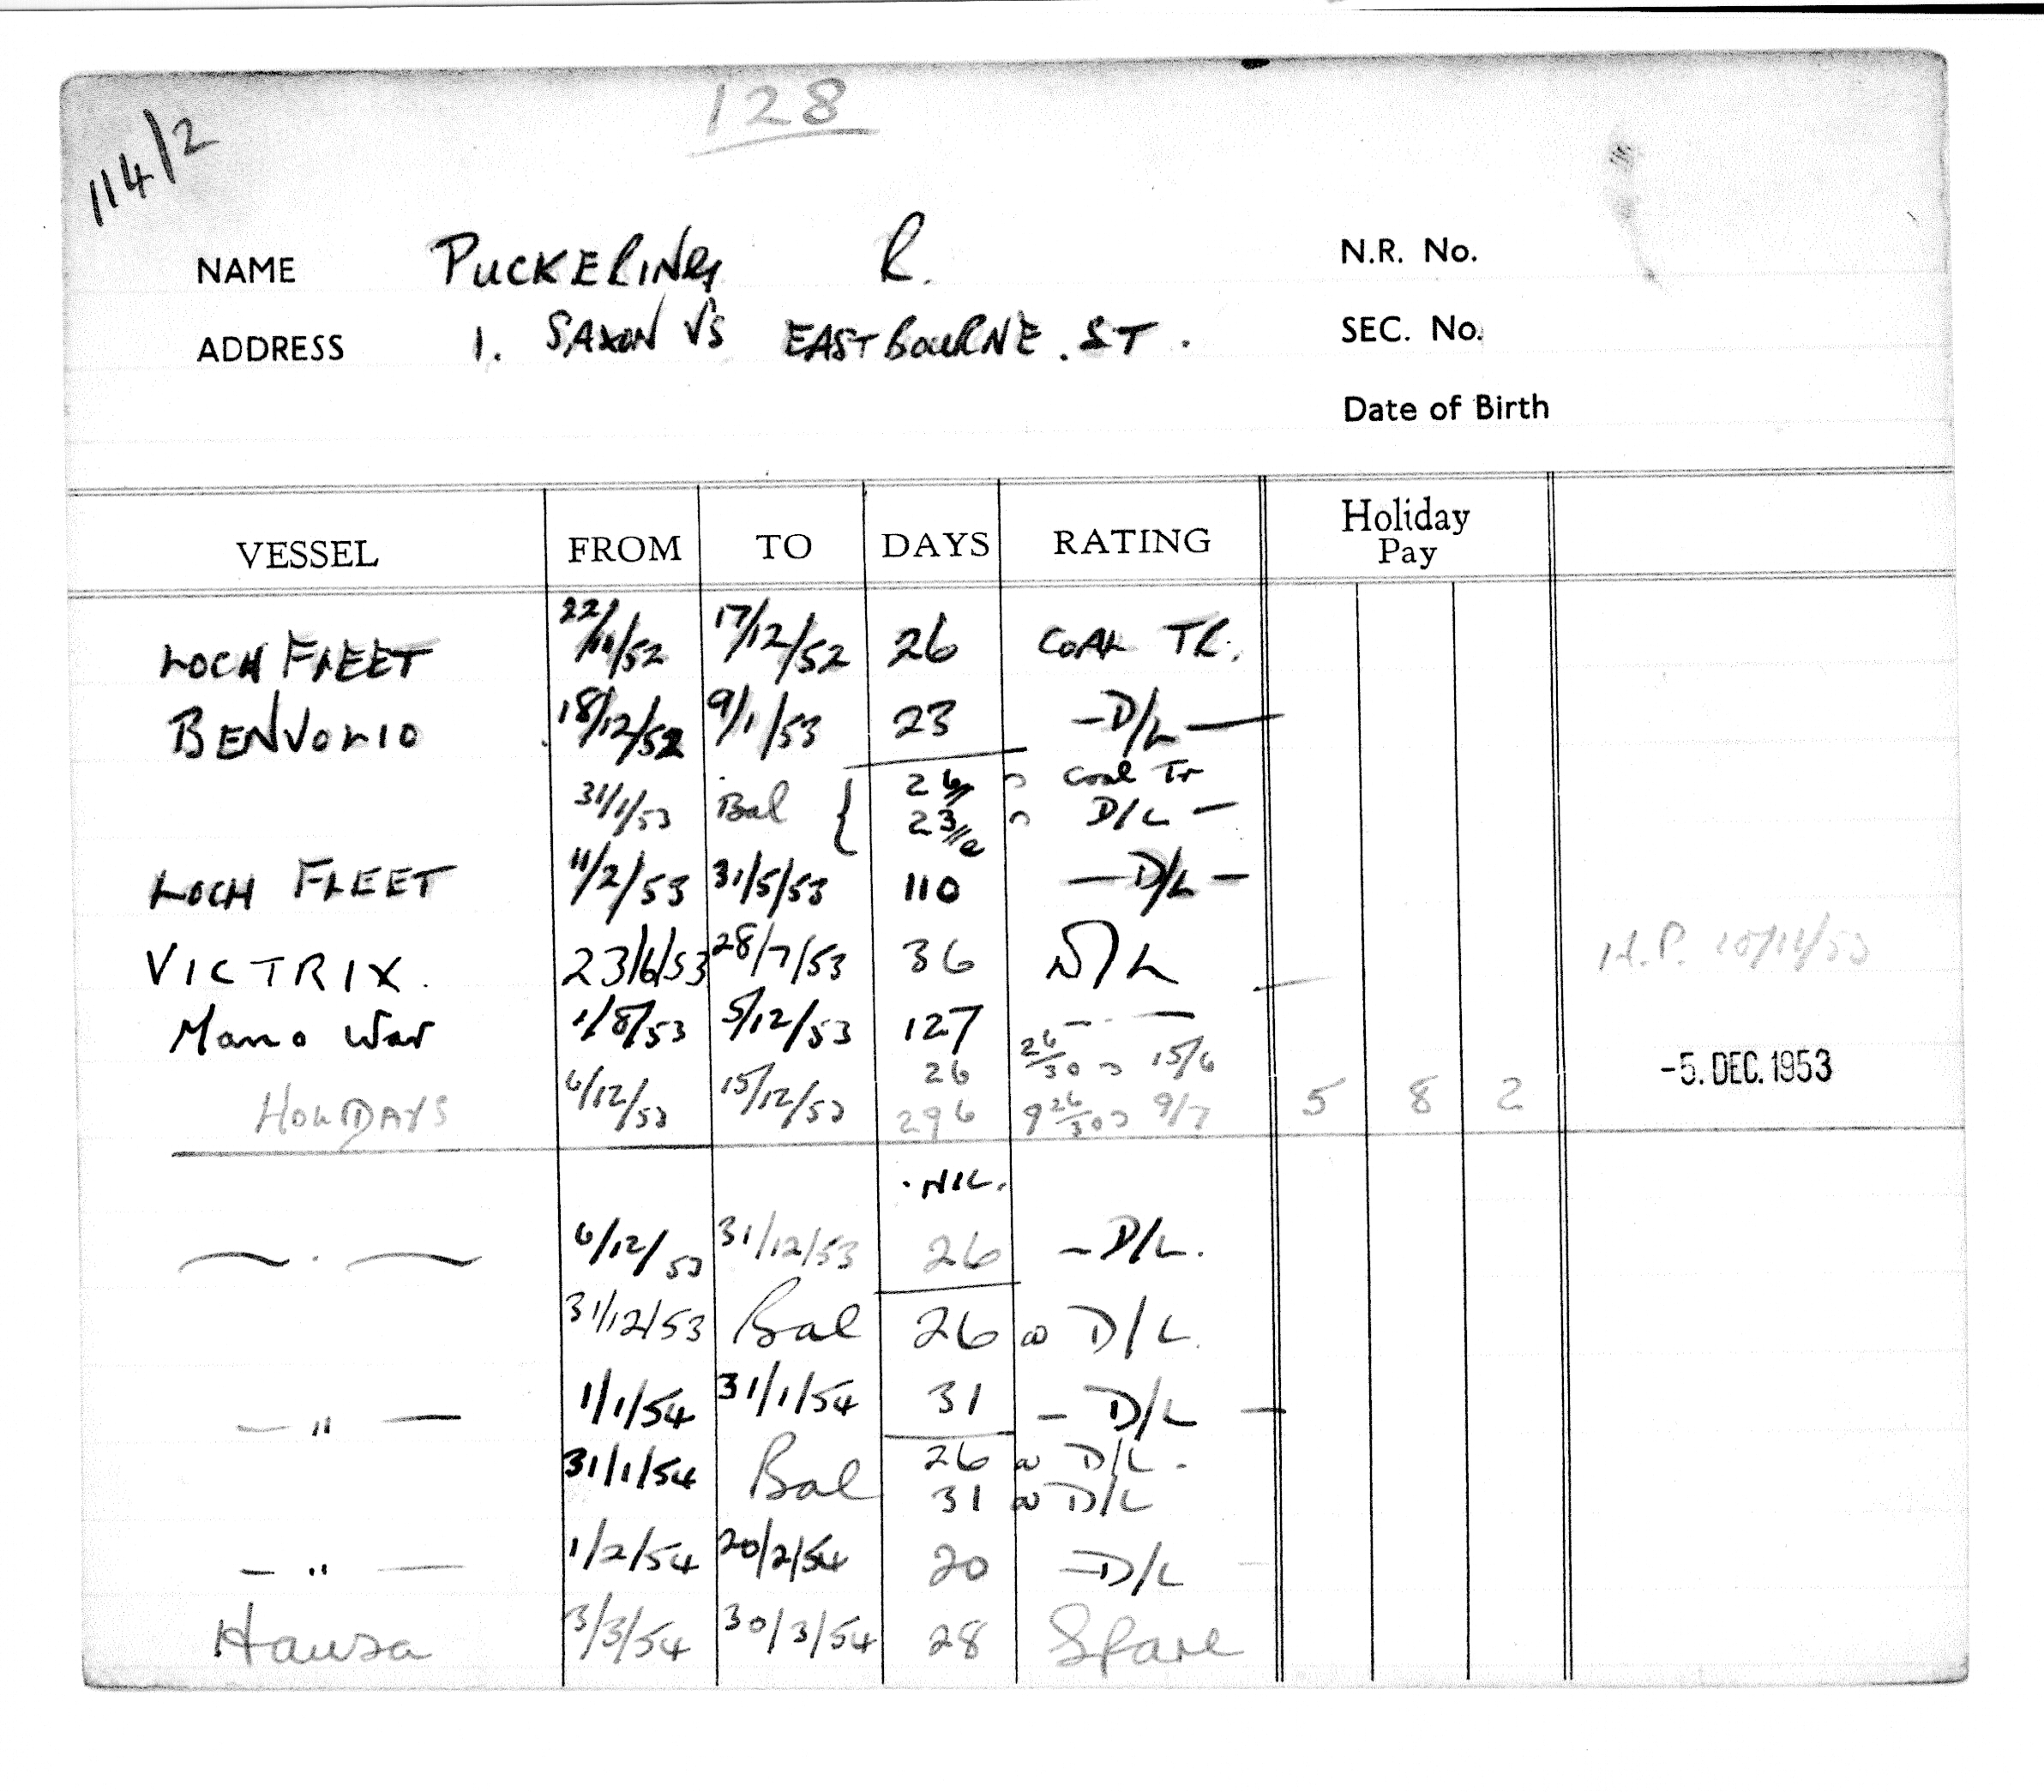 128
114/2
NAME PUCKERING R. N.R. No.
ADDRESS 1. SAXON VS EASTBOURNE. ST. SEC. No.
Date of Birth
VESSEL FROM TO DAYS RATING Holiday Pay
LOCH FLEET 22/11/52 17/12/52 26 COAL TR.
BENVOLIO 18/12/52 9/1/53 23 - D/L -
31/1/53 Bal { 26 Coal Tr
23 D/L -
LOCH FLEET 11/2/53 31/5/53 110 - D/L -
VICTRIX. 23/6/53 28/7/53 36 D/L H.P.
Man o War 1/8/53 5/12/53 127 - -
26 26/30 15/6 -5. DEC. 1953
HOLIDAYS 6/12/53 15/12/53 296 9 26/30 9/7 5 8 2
. NIL.
— . — 6/12/53 31/12/53 26 - D/L.
31/12/53 Bal 26 @ D/L.
— " — 1/1/54 31/1/54 31 - D/L -
31/1/54 Bal 26 @ D/L.
31 @ D/L
— " — 1/2/54 20/2/54 20 - D/L -
Hausa 3/3/54 30/3/54 28 Spare